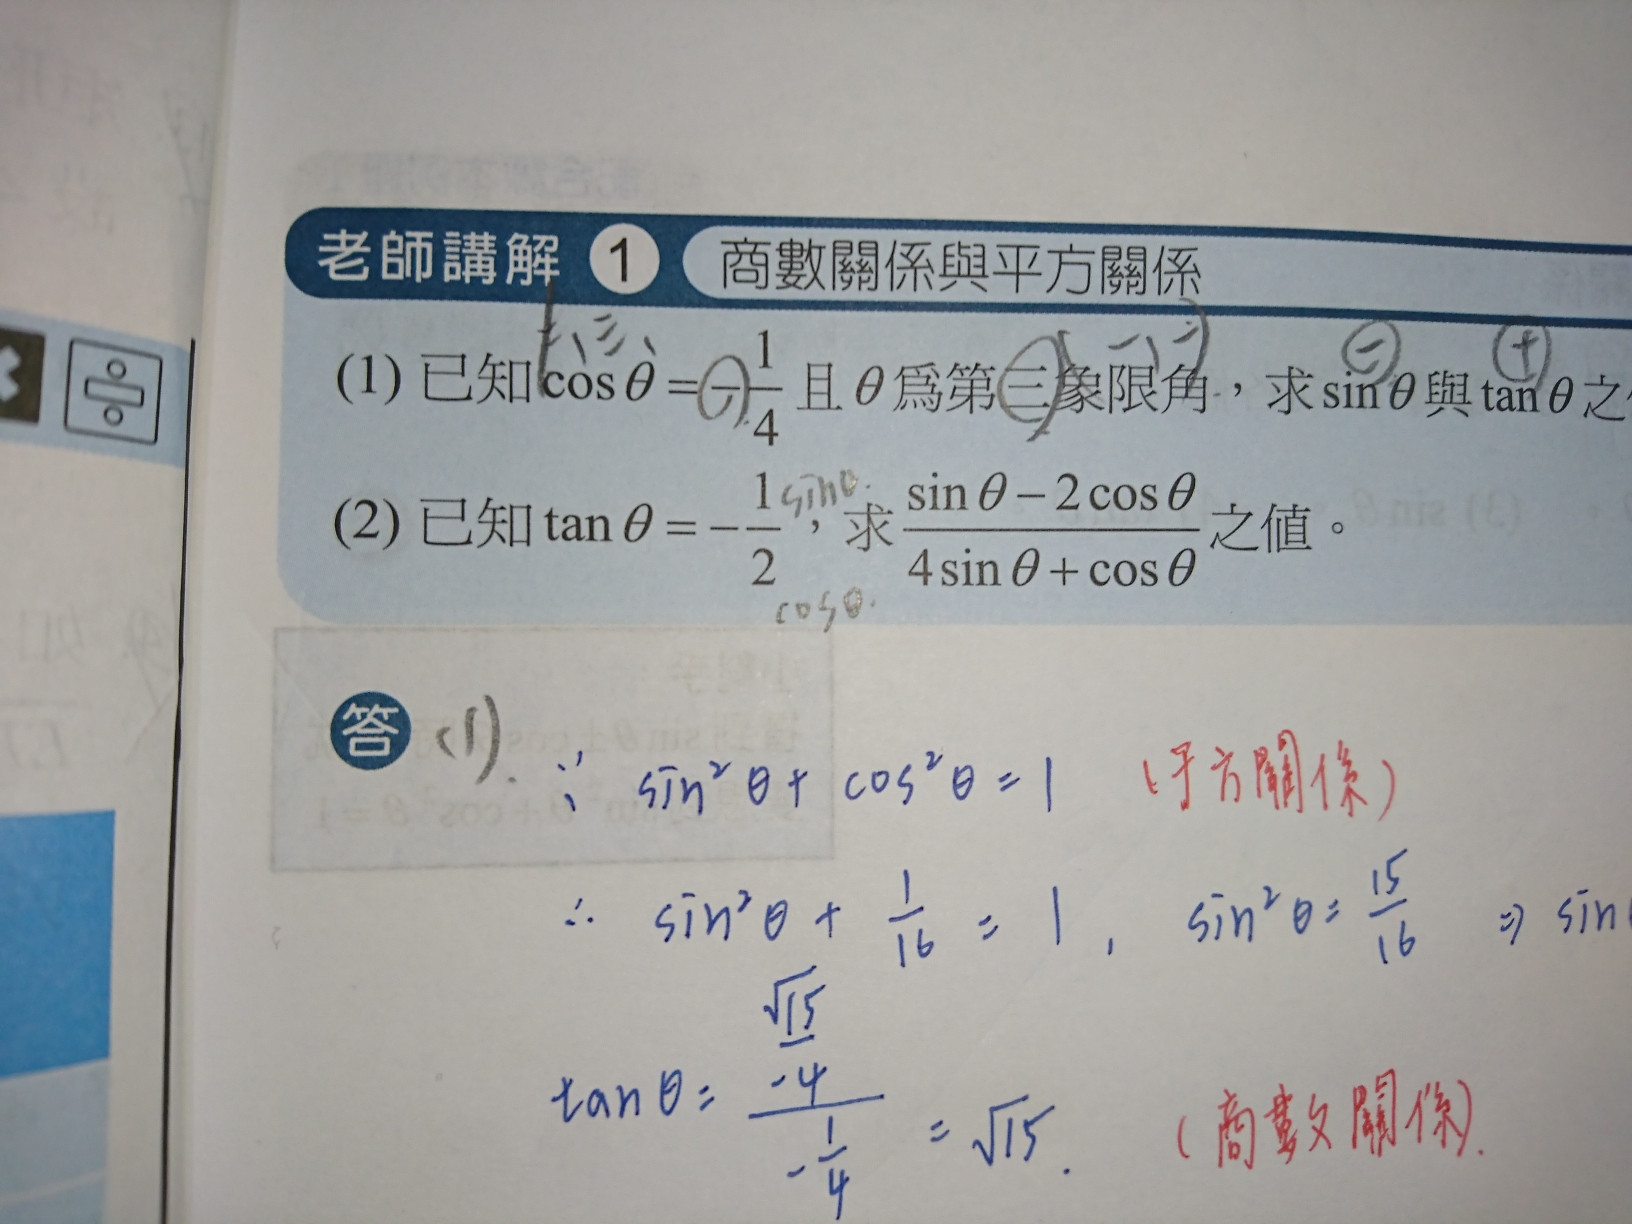 老師講解 1 商數關係與平方關係
二、三、 (一、二) ⊖ ⊕
(1) 已知 cos θ = -1/4 且 θ 為第三象限角，求 sin θ 與 tan θ 之
sinθ.
(2) 已知 tan θ = -1/2，求 (sin θ - 2 cos θ)/(4 sin θ + cos θ) 之值。
cosθ.
答 (1). ∵ sin² θ + cos² θ = 1 (平方關係)
∴ sin² θ + 1/16 = 1, sin² θ = 15/16 ⇒ sin
tan θ = (√15/-4)/(-1/4) = √15. (商數關係).